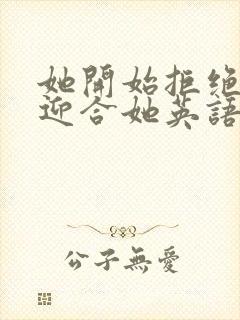 她開始拒絕
迎合她英語
公子無愛